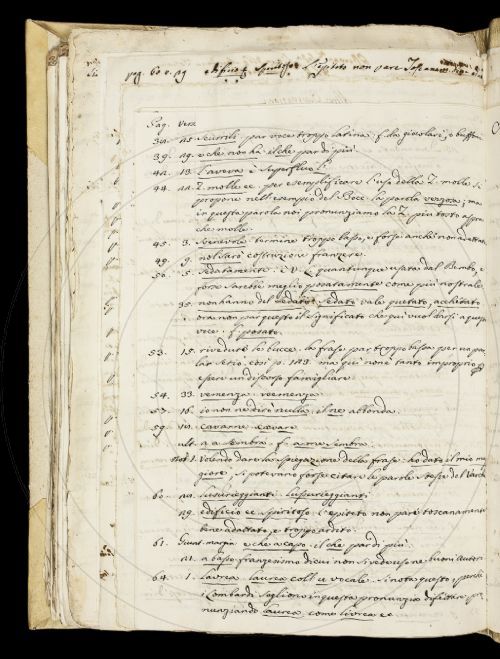 pag. 60 v. 29 edificio e Spiritoso l'epiteto non pare Toscanam.
Pag. Vers.
34. 25. Scurrili. par voce troppo latina: f. da giocolari, e buffon
39. 29. e che non ha. el che par di più
42. 13. l'aveva è Superfluo l'
44. 22. Z. molle &c. per esemplificare l'uso della Z. molle si
propone nell'esempio del Bocc. la parola verzora; ma
in questa parola noi pronunziamo la Z. più tosto aspra
che molle.
45. 3. Svenevole. termine troppo basso, e forse anche non adattato
49. 9. nol sarò costruzione franzese.
50. 5. Sedatamente. S. V. quantunque usata dal Bembo, e
forse sarebbe meglio posatamente come più nostrale
35. non hanno del Sedato. Sedato vale quetato, acchetato
ora non par questo il significato che qui vuol darsi a questa
voce. f. posato.
53. 15. rivedute le bucce. la frase par troppo bassa per un par
lar serio. così p. 143. ma qui non è tanto improprio p
essere un discorso famigliare.
54. 33. vemenza. veemenza
57. 16. io non ne dirò nulla. il ne abbonda.
59. 14. cavarne. cavare
ult. a a Sembra. f. a me sembra.
not. 1. Volendo dare la spiegazione della frase: ho dato il mio mag
giore, si potevano forse citare le parole stesse del Varchi
60. 24. lusureggianti. lussureggianti
29. edificio e spiritoso. l'epiteto non pare toscanamente
bene adattato, e troppo ardito.
61. Giunt. margin. e che a capo. il che par di più
21. a basso franzesismo di cui non si vede use ne buoni autori
64. 1. lavrea. laurea coll' u vocale. Si nota questo, perchè
i Lombardi sogliono in questa pronunzia difettare, pro
nunziando laurea come livrea &c.